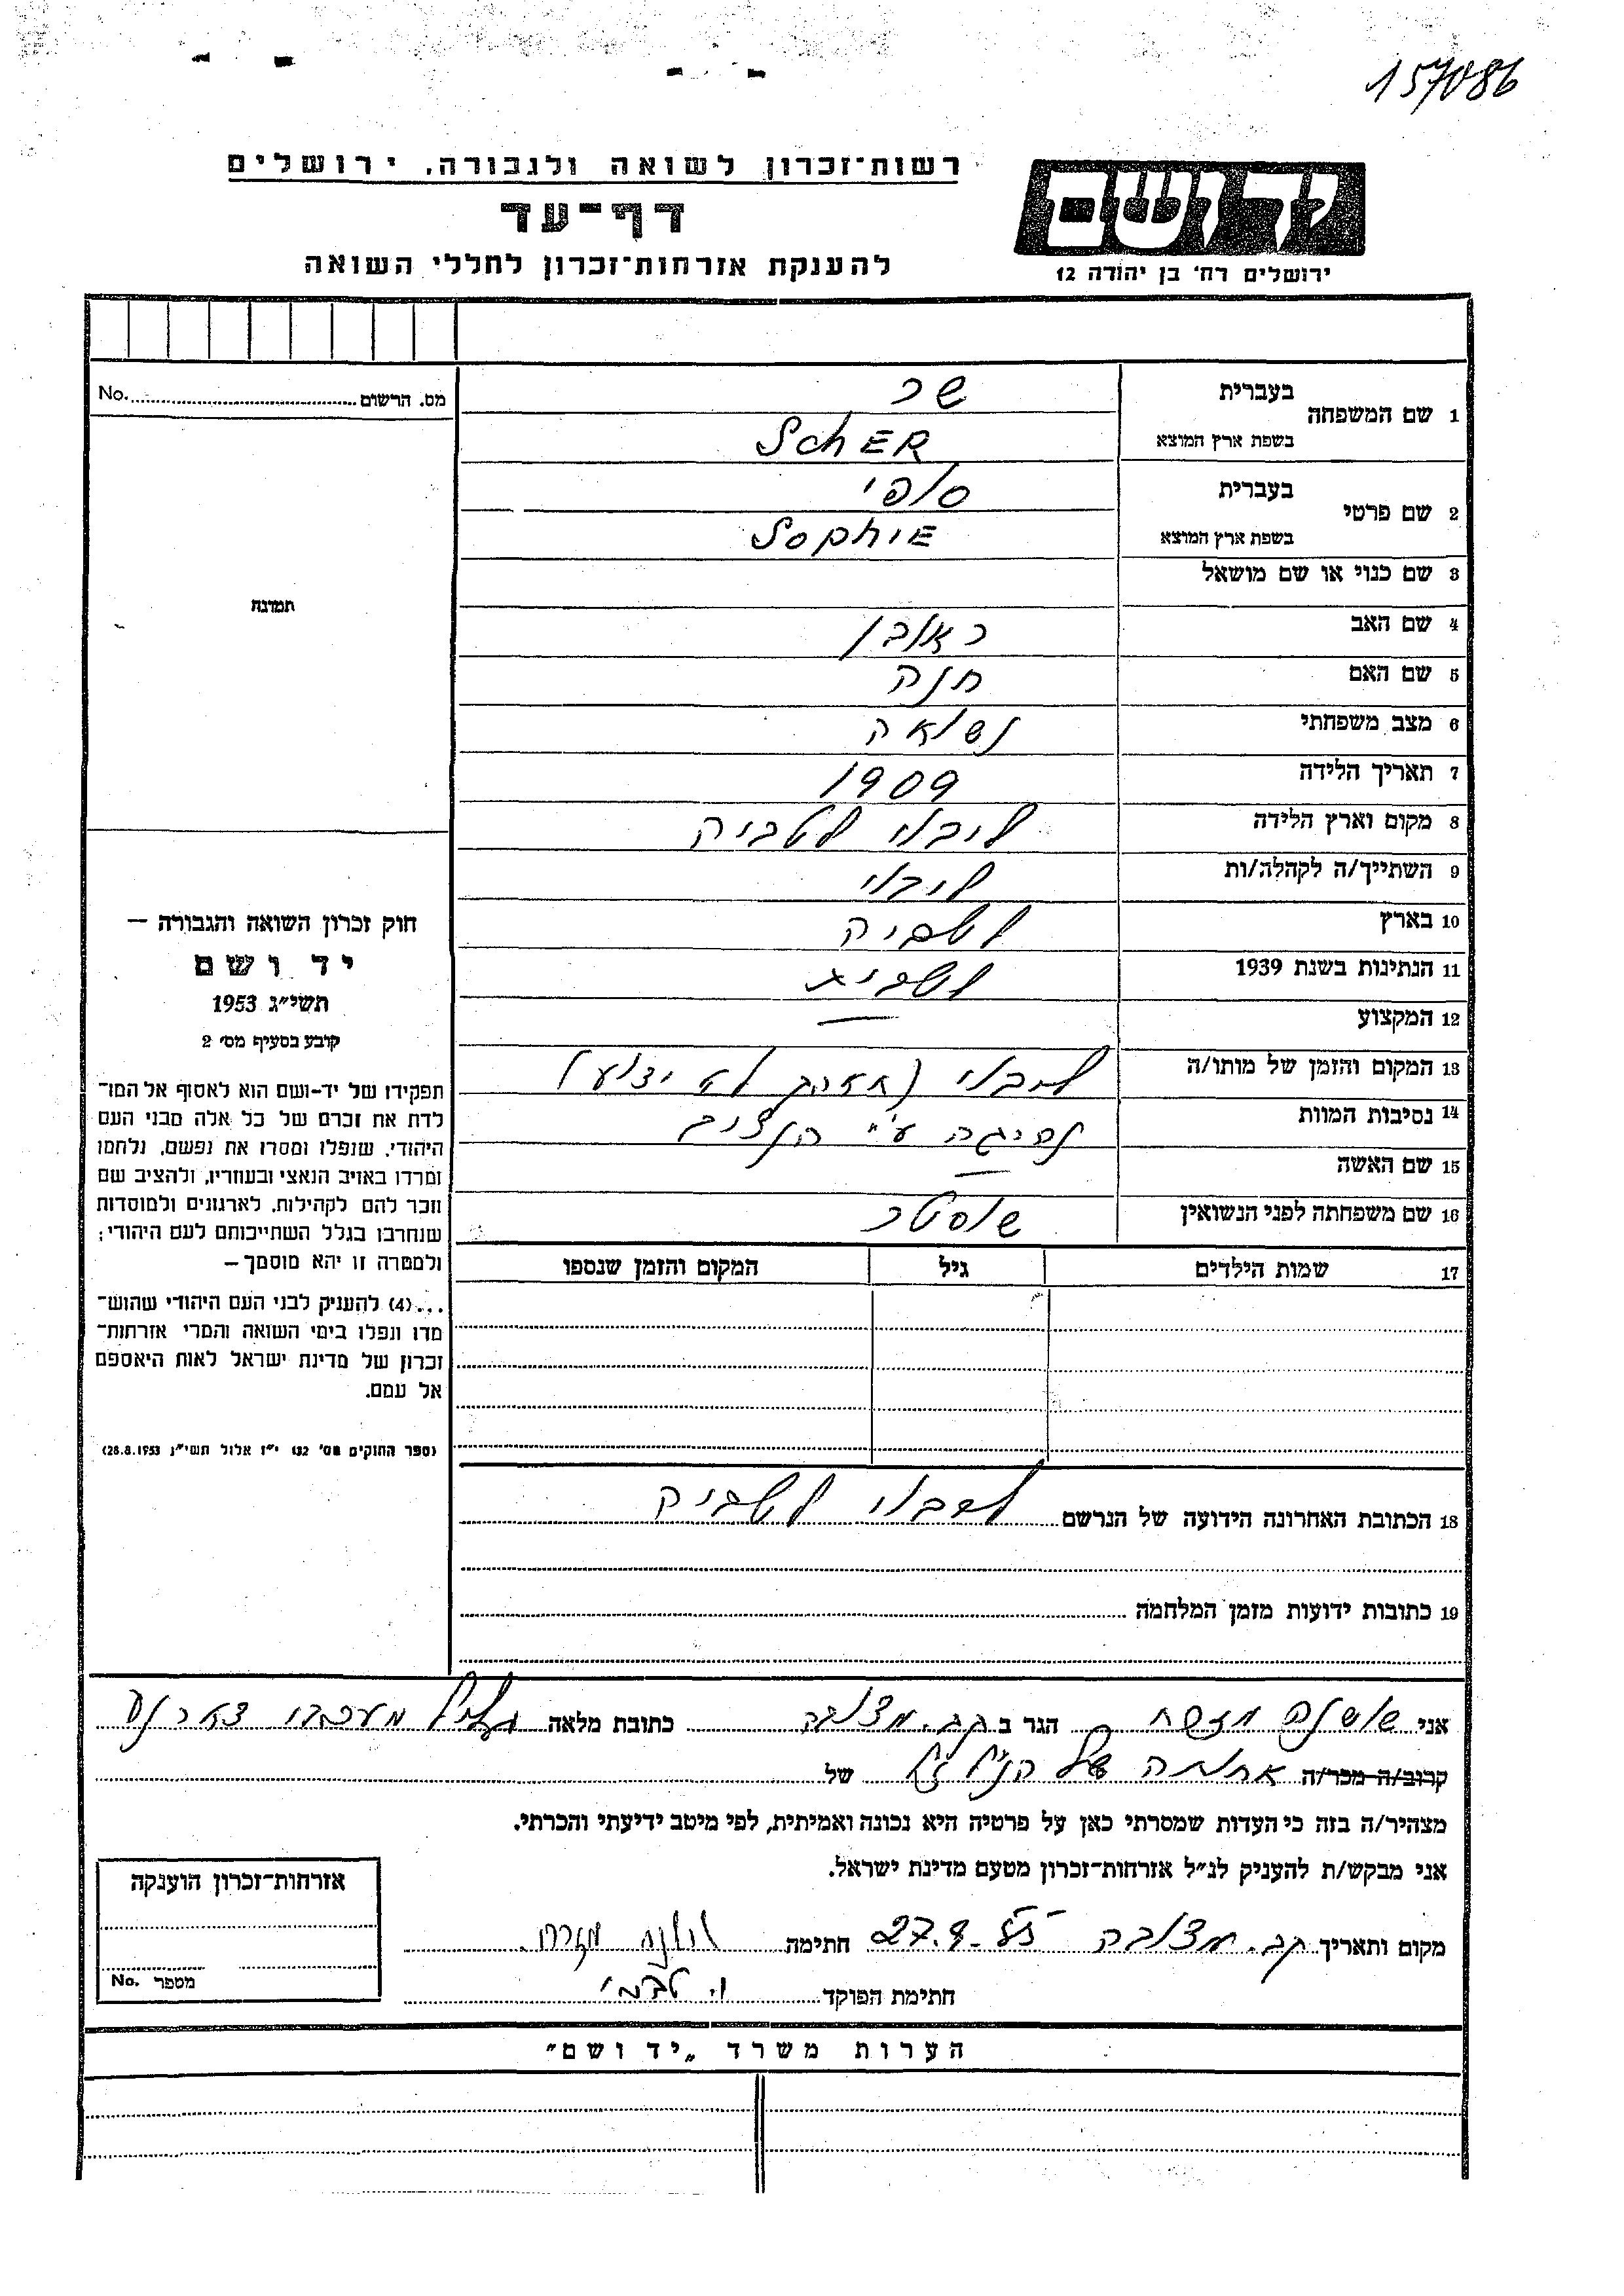 157086
רשות־זכרון לשואה ולגבורה, ירושלים
יד ושם
דף־עד
להענקת אזרחות־זכרון לחללי השואה
ירושלים רח' בן יהודה 12
מס. הרשום No.
1 שם המשפחה בעברית שר
בשפת ארץ המוצא SchER
2 שם פרטי בעברית סופי
בשפת ארץ המוצא SophiE
3 שם כנוי או שם מושאל
תמונה
4 שם האב ראובן
5 שם האם חנה
6 מצב משפחתי נשואה
7 תאריך הלידה 1909
8 מקום וארץ הלידה ליבוי לטביה
9 השתייך/ה לקהלה/ות ליבוי
10 בארץ לטביה
11 הנתינות בשנת 1939 לטבית
12 המקצוע —
13 המקום והזמן של מותו/ה ליבוי (תאריך לא ידוע)
14 נסיבות המוות נהרגה ע"י הנצים
15 שם האשה —
16 שם משפחתה לפני הנשואין שוסטר
17 שמות הילדים גיל המקום והזמן שנספו
חוק זכרון השואה והגבורה –
יד ושם
תשי״ג 1953
קובע בסעיף מס׳ 2
תפקידו של יד-ושם הוא לאסוף אל המו־
לדת את זכרם של כל אלה מבני העם
היהודי, שנפלו ומסרו את נפשם, נלחמו
ומרדו באויב הנאצי ובעוזריו, ולהציב שם
וזכר להם לקהילות, לארגונים ולמוסדות
שנחרבו בגלל השתייכותם לעם היהודי;
ולמטרה זו יהא מוסמך –
...(4) להעניק לבני העם היהודי שהוש־
מדו ונפלו בימי השואה והמרי אזרחות־
זכרון של מדינת ישראל לאות היאספם
אל עמם.
(ספר החוקים מס׳ 132 י״ז אלול תשי״ג 28.8.1953)
18 הכתובת האחרונה הידועה של הנרשם ליבוי לטביה
19 כתובות ידועות מזמן המלחמה
אני הגר ב קב. מצובה כתובת מלאה גליל מערבי
קרוב/ה מכר/ה אחותה של הנ"ל של
מצהיר/ה בזה כי העדות שמסרתי כאן על פרטיה היא נכונה ואמיתית, לפי מיטב ידיעתי והכרתי.
אני מבקש/ת להעניק לנ״ל אזרחות־זכרון מטעם מדינת ישראל.
מקום ותאריך קב. מצובה חתימה
חתימת הפוקד
אזרחות־זכרון הוענקה
מספר No.
הערות משרד „יד ושם״